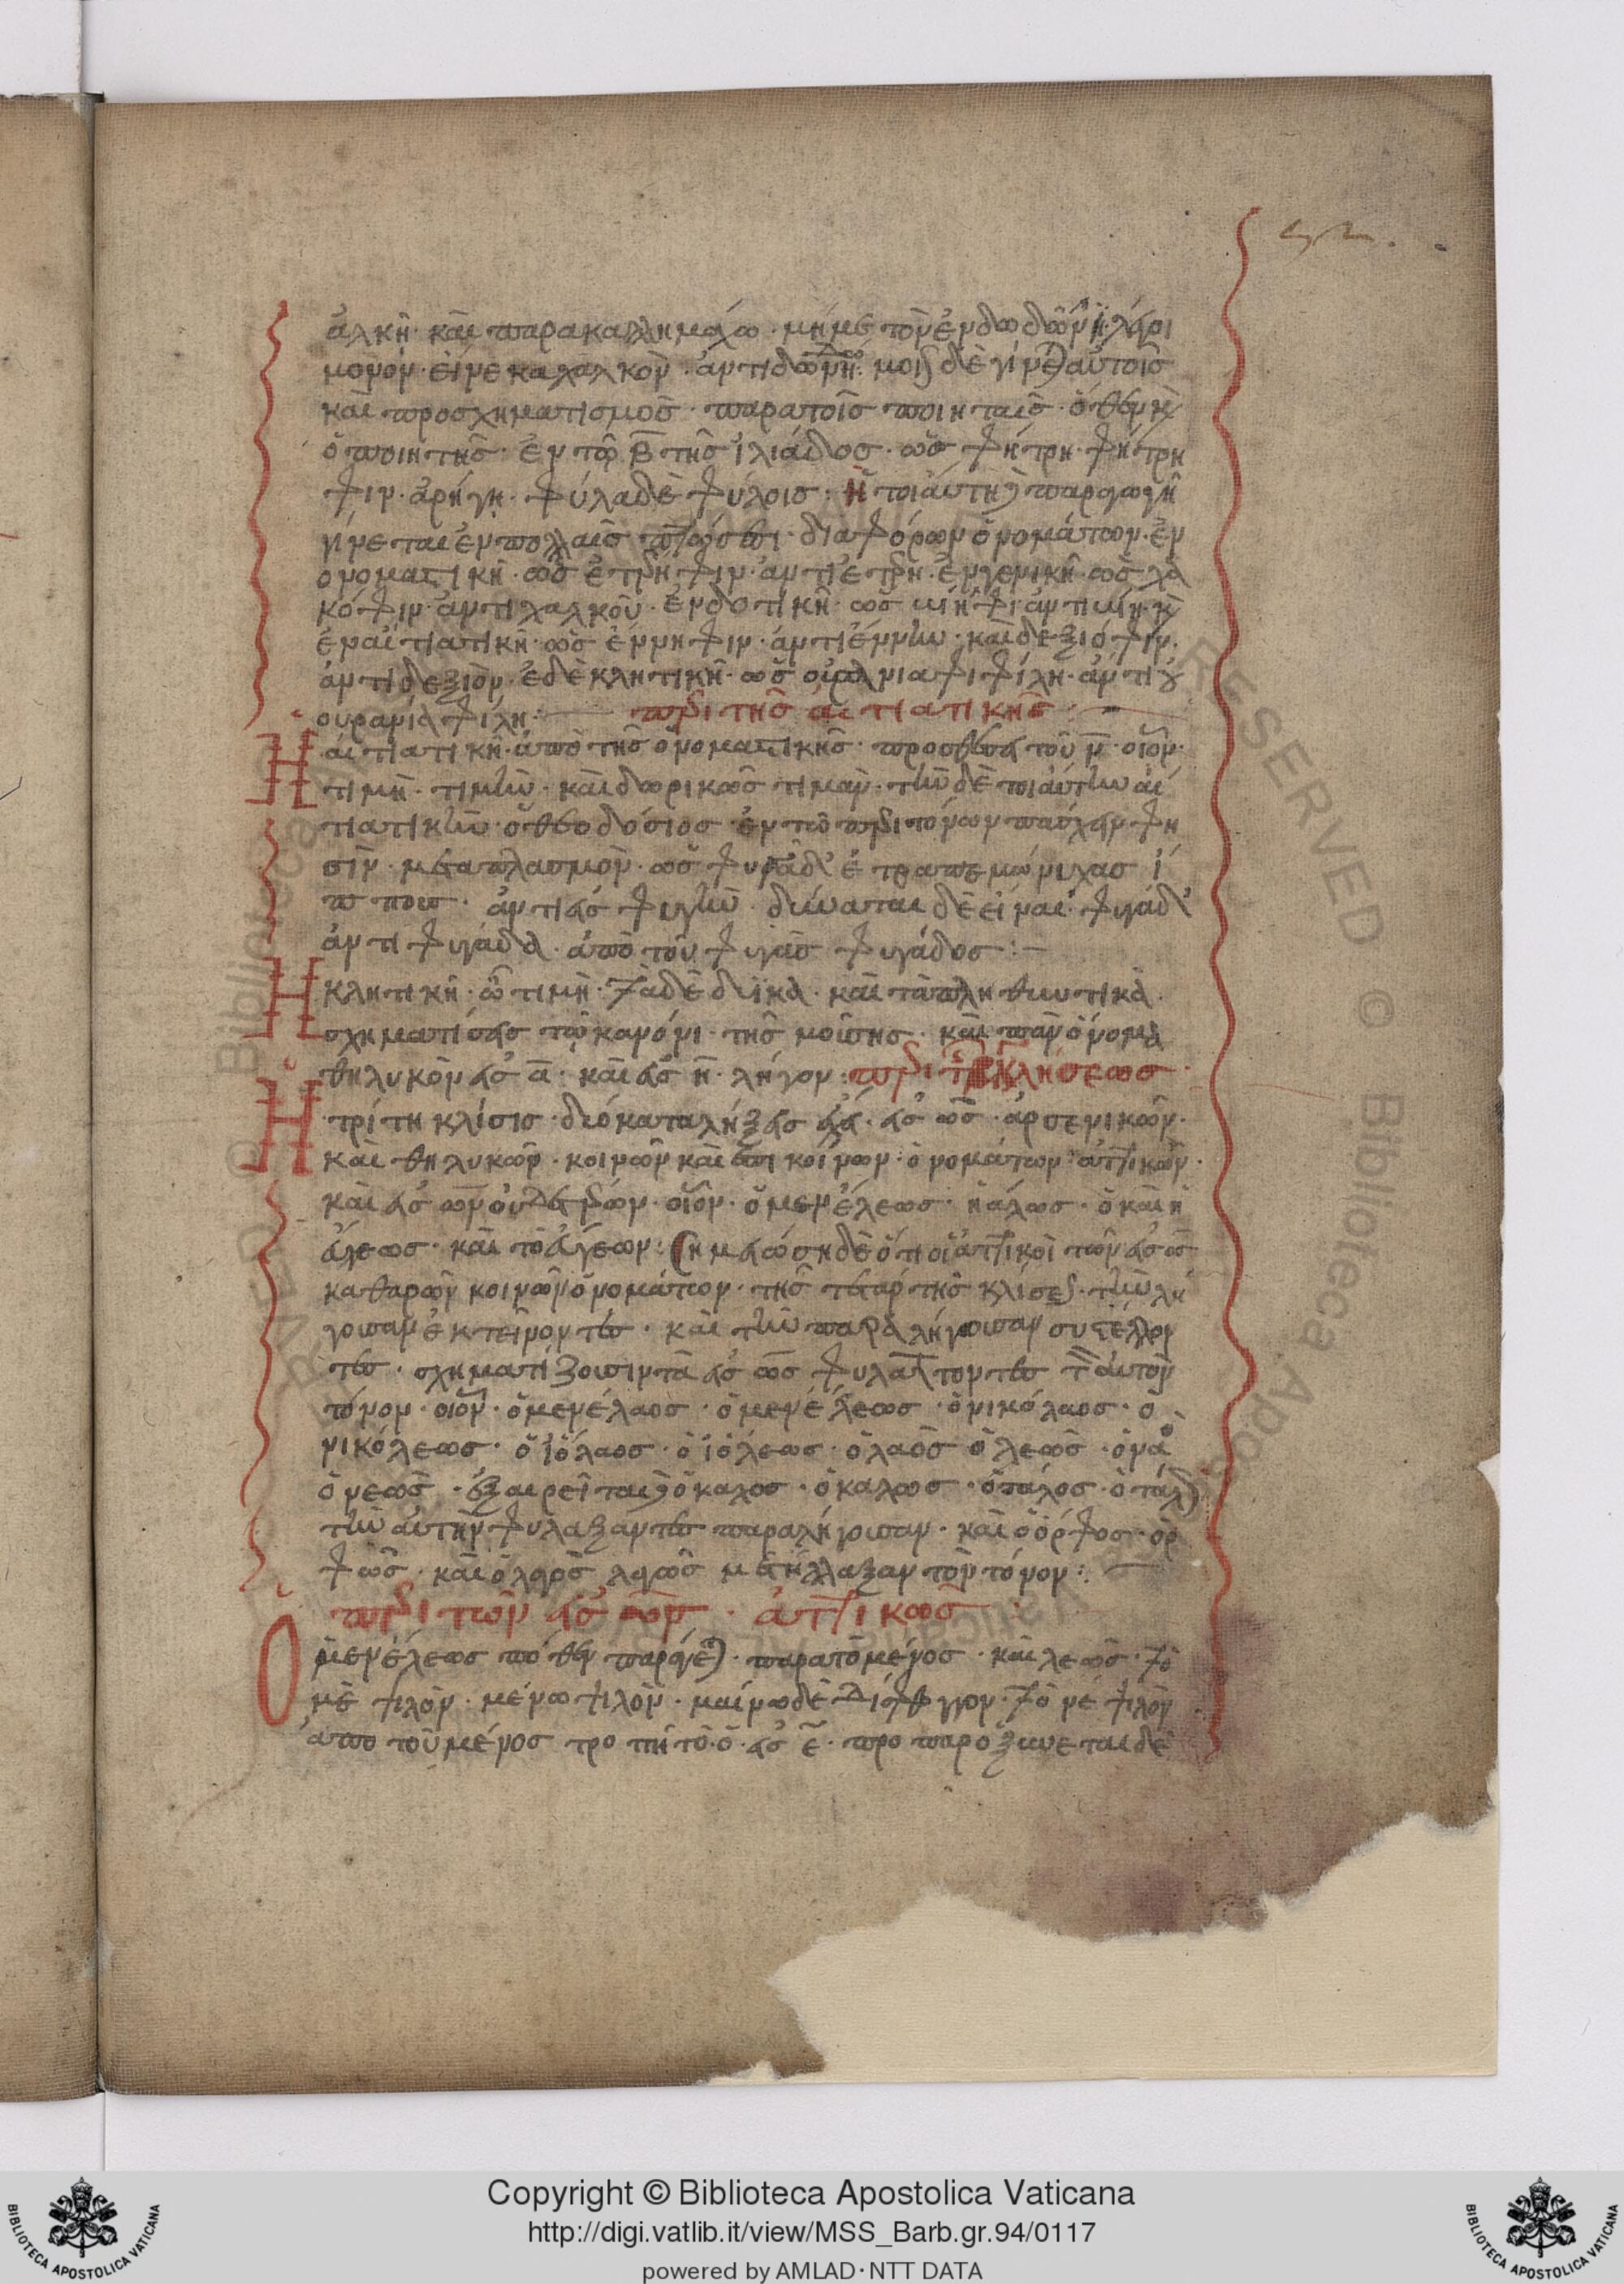 ἀλκῆ· καὶ παρακαλλημάχω· μή με τὸν ἐν δωδώνη λέγοι
μόνον· εἵνεκα χαλκὸν· ἀντὶ δωδώνη: μοις δὲ γίνεται αὐτοῖς
καὶ προσχηματισμὸς· παρὰ τοῖς ποιηταῖς· ὅθεν κ
ὁ ποιητὴς· ἐν τῶ β τῆς ἰλιάδος· ὡς φρήτρη· φρήτρη
φιν· ἀρήγη· φύλα δὲ φύλοις: Ἡ τοιαύτη παραγωγὴ
γίνεται ἐν πολλαῖς πτώσεσι· διαφόρων ὀνομάτων· ἐν
ὀνομαστικῆ· ὡς ἑτέρηφιν· ἀντὶ ἑτέρη· ἐν γενικῆ· ὡς χαλ
κόφιν· ἀντὶ χαλκοῦ· ἐν δοτικῆ· ὡς
ἐν αἰτιατικῆ· ὡς ἔννηφιν· ἀντὶ ἔννην· καὶ δεξιόφιν·
ἀντὶ δεξιὸν· ἐν δὲ κλητικῆ· ὡς οὐρανίαφι φίλη· ἀντὶ τοῦ
οὐρανία φίλη: περὶ τῆς αἰτιατικῆς
Ἡ αἰτιατικὴ· ἀπὸ τῆς ὀνομαστικῆς· προσθέσει τοῦ ν· οἷον·
τιμὴ· τιμὴν· καὶ δωρικῶς τιμὰν· τὴν δὲ τοιαύτην αἰ
τιατικὴν· ὁ θεοδόσιος ἐν τῶ περὶ τόνων πάσχειν φη
σὶν· μεταπλασμὸν· ὡς φύγαδ' ἔτραπε μώνυχας ἵπ
πους· ἀντὶ εἰς φυγὴν· δύναται δὲ εἶναι φυγάδ'
ἀντὶ φυγάδα· ἀπὸ τοῦ φυγὰς φυγάδος:
Ἡ κλητικὴ· ὦ τιμὴ· τὰ δὲ δυϊκὰ· καὶ τὰ πληθυντικὰ·
σχηματίσεις τῶ κανόνι· τῆς μούσης· καὶ πᾶν ὄνομα
θηλυκὸν εἰς α· καὶ εἰς η· λῆγον: περὶ τρίτης κλήσεως
Ἡ τρίτη κλίσις· δύο καταλήξεις ἔχει· εἰς ως· ἀρσενικῶν·
καὶ θηλυκῶν· κοινῶν καὶ ἐπικοίνων· ὀνομάτων ἀττικῶν·
καὶ εἰς ων οὐδετέρων· οἷον· ὁ μενέλεως· ἡ ἅλως· ὁ καὶ ἡ
εὔγεως· καὶ τὸ εὔγεων: Σημείωση δὲ ὅτι οἱ ἀττικοὶ τῶν εἰς ος
καθαρῶν κοινῶν ὀνομάτων· τῆς τετάρτης κλίσεως· τὴν λή
γουσαν ἐκτείνοντες· καὶ τὴν παραλήγουσαν συστέλλον
τες· σχηματίζουσιν τὰ εἰς ως φυλάττοντες τὸν αὐτὸν
τόνον· οἷον· ὁ μενέλαος· ὁ μενέλεως· ὁ νικόλαος· ὁ
νικόλεως· ὁ ἰόλαος· ὁ ἰόλεως· ὁ λαὸς ὁ λεὼς· ὁ ναὸς
ὁ νεὼς· ἐξαιρεῖται ὁ κάλος· ὁ κάλως· ὁ τάλος· ὁ τάλως
τὴν αὐτὴν φυλάξαντες παραλήγουσαν· καὶ ὁ ὀρφος· ὀρ
φὼς· καὶ ὁ λαγὸς λαγὼς μετήλλαξαν τὸν τόνον:
περὶ τῶν εἰς ως· ἀττικῶς
Ὁ μενέλεως πόθεν παράγεται· παρὰ τὸ μένος· καὶ λεὼς· τὸ
με ψιλὸν· μένω ψιλὸν· μαίνω δὲ δίφθογγον· τὸ νέ ψιλὸν
ἀπὸ τοῦ μένος τροπῆ τὸ ο εἰς ε· προπαροξύνεται δὲ
Copyright © Biblioteca Apostolica Vaticana
http://digi.vatlib.it/view/MSS_Barb.gr.94/0117
powered by AMLAD·NTT DATA